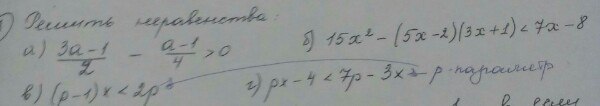 Решить неравенства:
а) (3a-1)/2 - (a-1)/4 > 0 б) 15x² - (5x-2)(3x+1) < 7x-8
в) (p-1)x < 2p г) px-4 < 7p-3x p-параметр